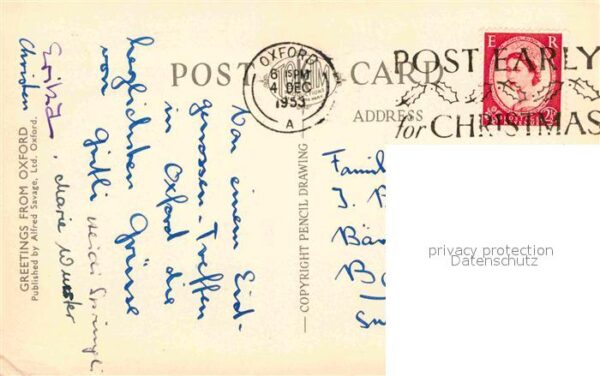 POST CARD
OXFORD
6 15 PM
4 DEC
1953
A
POST EARLY
for CHRISTMAS
E R
ADDRESS
Von einem Eid-
genossen-Treffen
in Oxford die
herzlichsten Grüsse
von Gritli Heidi
Marie Wurster
GREETINGS FROM OXFORD
Published by Alfred Savage, Ltd. Oxford.
COPYRIGHT PENCIL DRAWING
Famil
J. B
Bä
B
privacy protection
Datenschutz